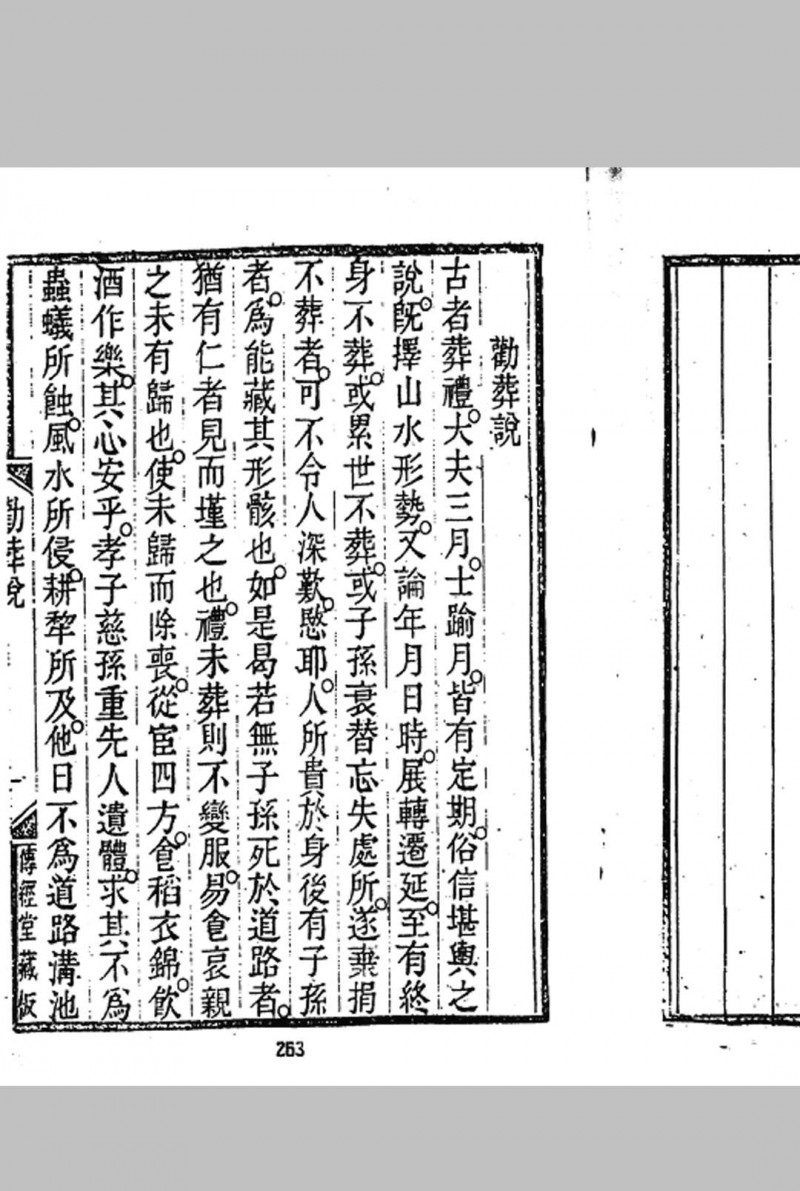 勸葬說
古者葬禮。大夫三月。士踰月。皆有定期。俗信堪輿之
說。旣擇山水形勢。又論年月日時。展轉遷延。至有終
身不葬。或累世不葬。或子孫衰替忘失處所。遂棄捐
不葬者。可不令人深歎愍耶。人所貴於身後有子孫
者。爲能藏其形骸也。如是曷若無子孫死於道路者。
猶有仁者見而墐之也。禮未葬則不變服。易食哀親
之未有歸也。使未歸而除喪。從宦四方。食稻衣錦。飲
酒作樂。其心安乎。孝子慈孫重先人遺體。求其不爲
蟲蟻所蝕。風水所侵。耕犂所及。他日不爲道路溝池
勸葬說
一
傳經堂藏板
263